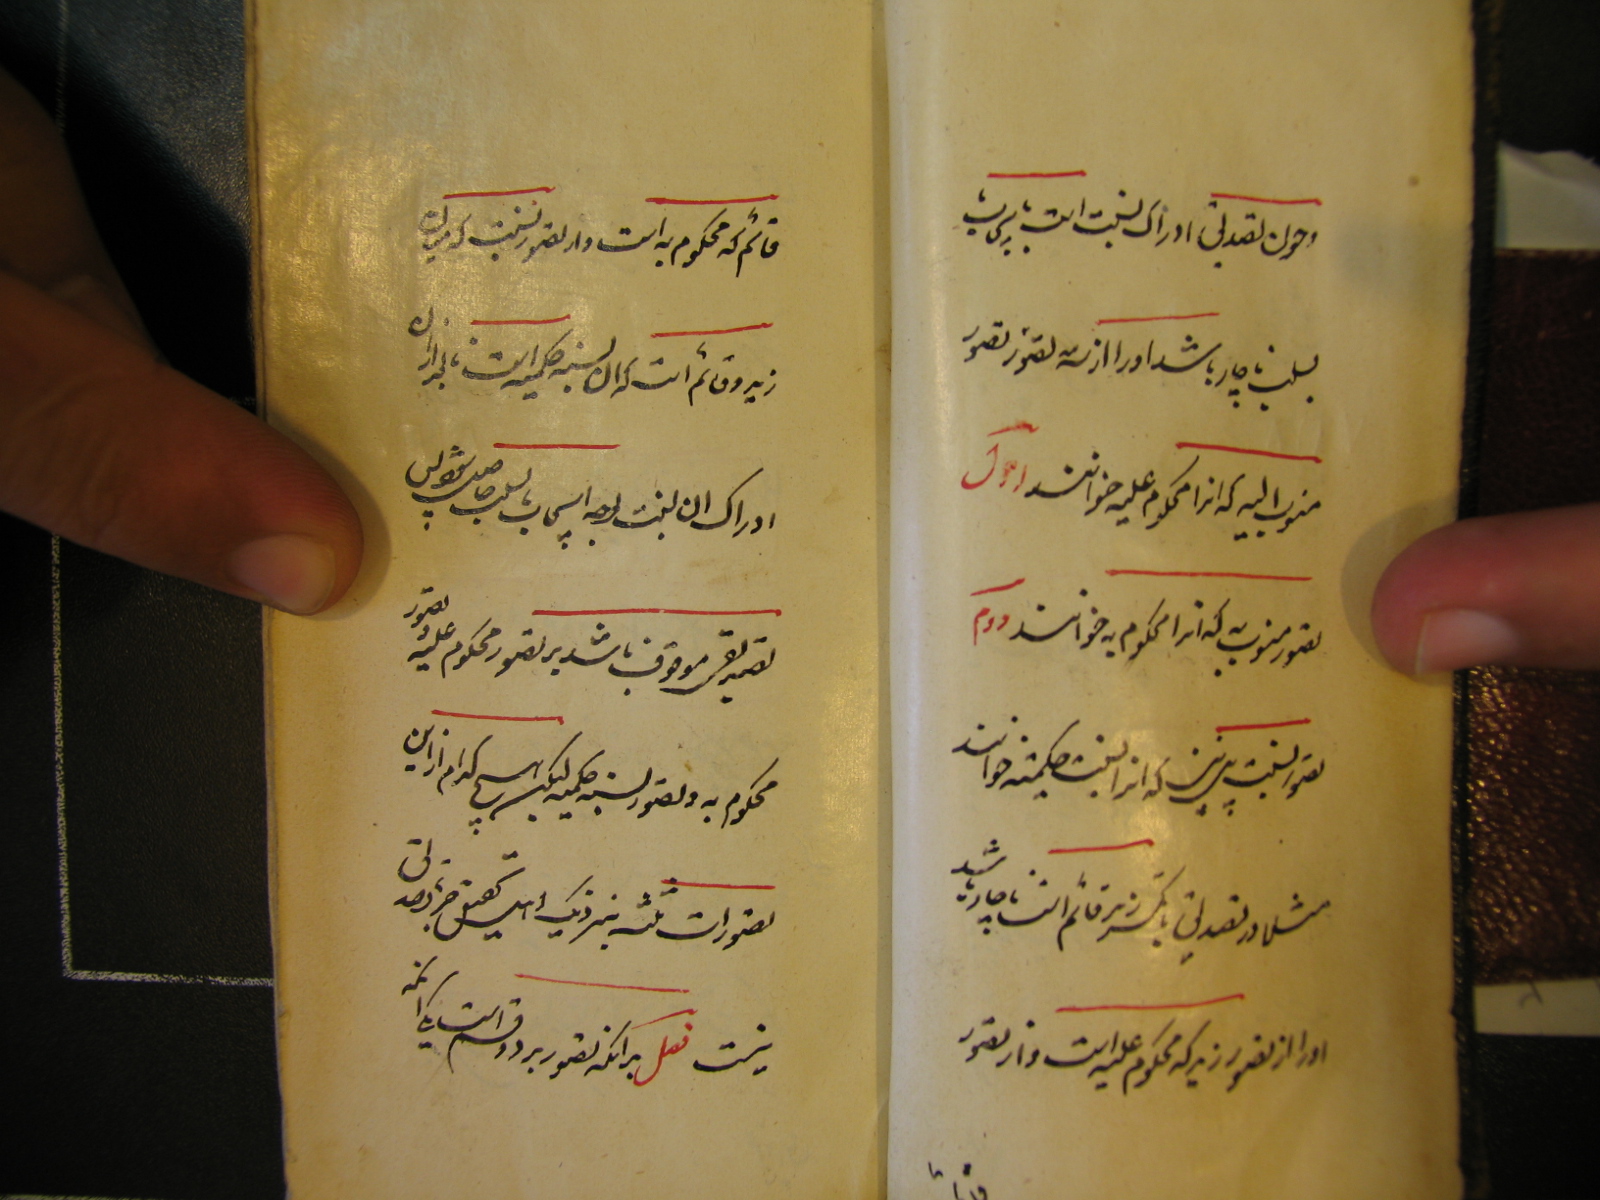 و چون تصدیق ادراک نسبت است بایجاب یا
بسلب ناچار باشد او را از سه تصور تصور
منسوب الیه که آنرا محکوم علیه خوانند اول
تصور منسوب به که آنرا محکوم به خوانند دوم
تصور نسبت بین بین که آنرا نسبت حکمیه خوانند
مثلا در تصدیق بآنکه زید قائم است ناچار باشد
او را از تصور زید که محکوم علیه است و از تصور
قائم که محکوم به است و از تصور نسبت که میان
زید و قائم است که آن نسبة حکمیه است بعد از آن
ادراک آن نسبت بوجه ایجاب یا سلب حاصل شود پس
تصدیق موقوف باشد بر تصور محکوم علیه و تصور
محکوم به و تصور نسبة حکمیه لیکن هیچ کدام از این
تصورات ثلثه نزدیک اهل تحقیق جزء تصدیق
نیست فصل بدانکه تصور بر دو قسم است یکی آنکه